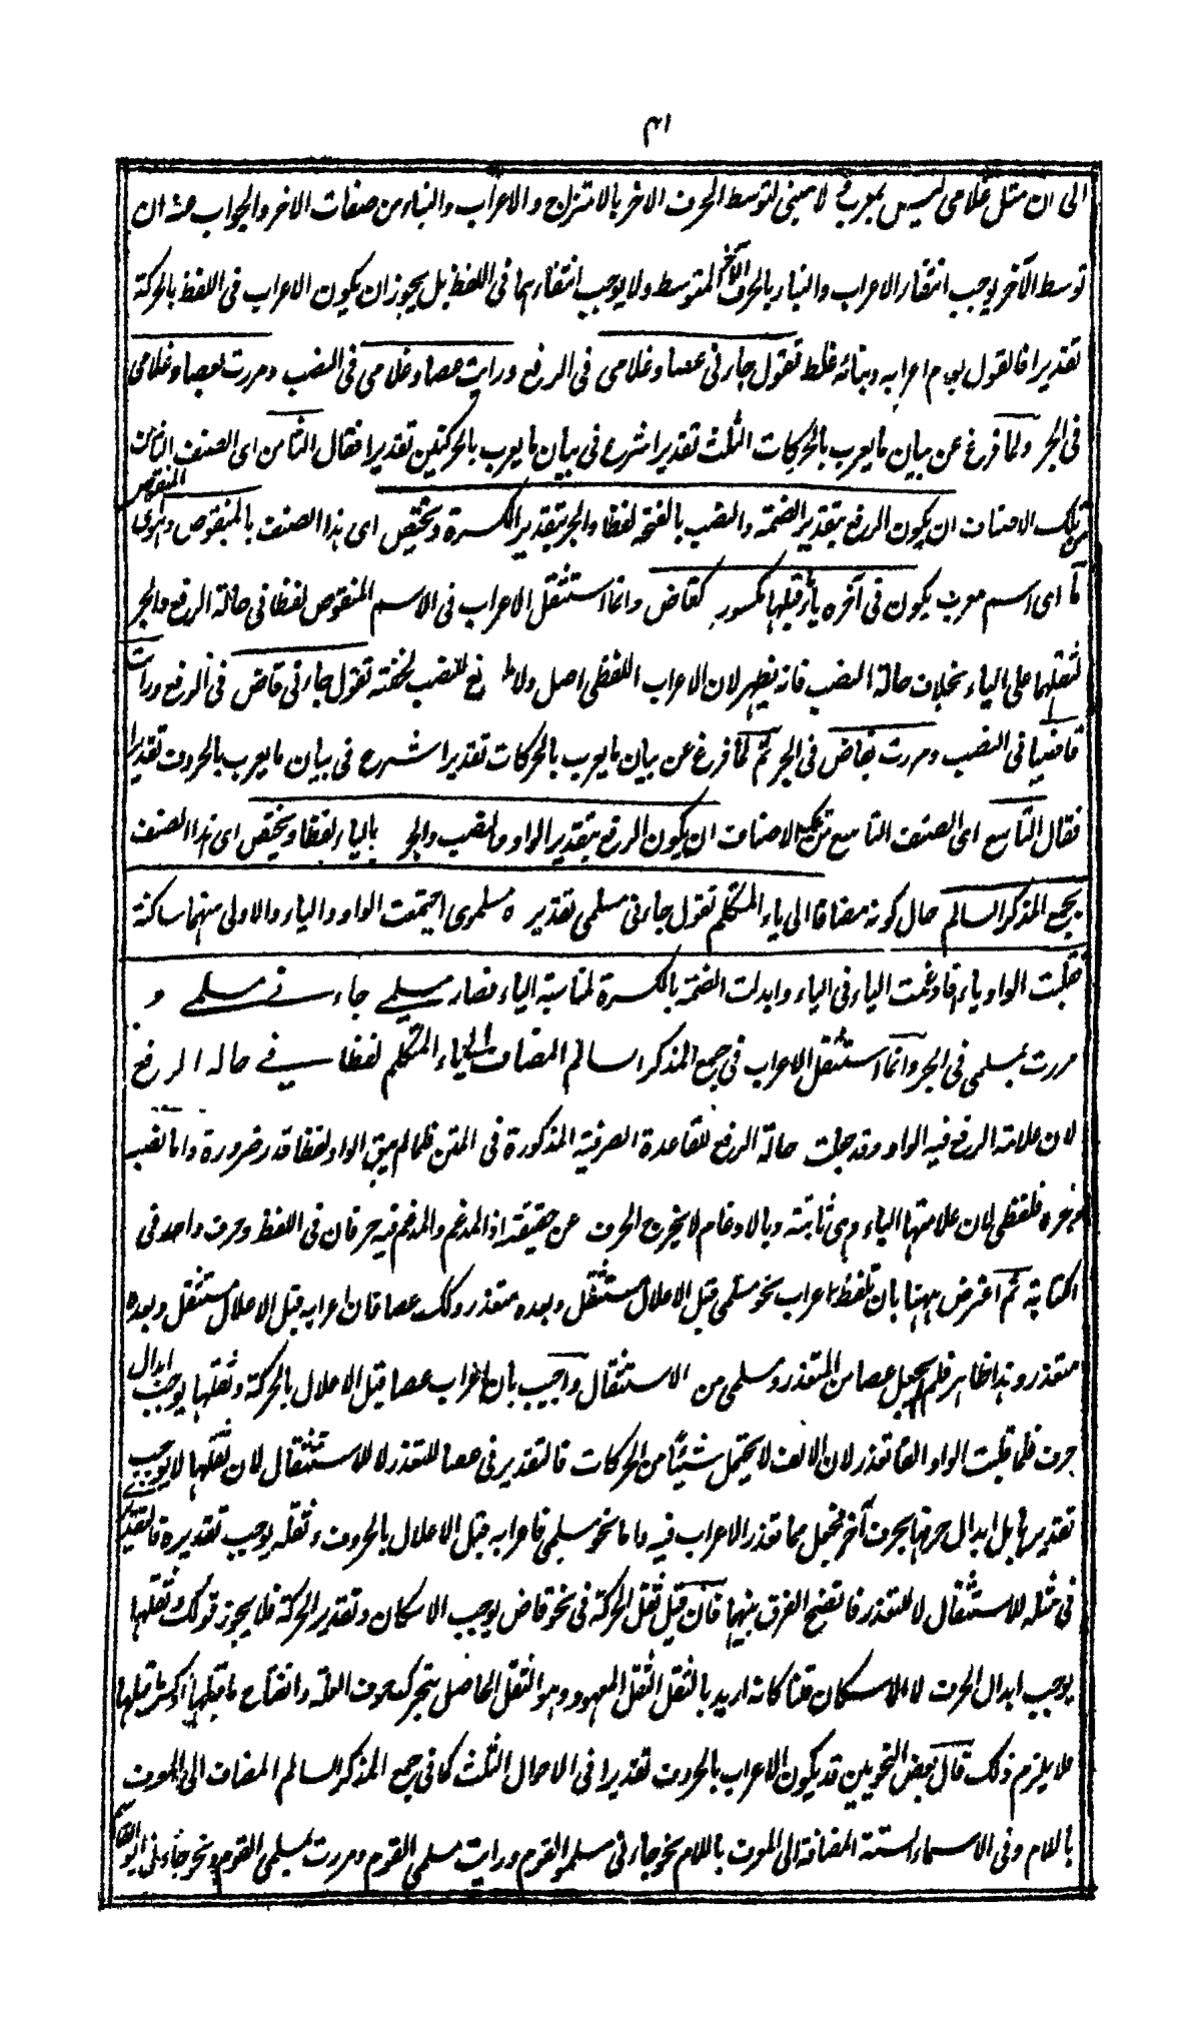 ٣١
الى ان مثل غلامى ليس بمعرب لا مبنى لتوسط الحرف الاخر بالامتزاج والاعراب والبناء من صفات الاخر والجواب عنه ان
توسط الآخر يوجب انتفاء الاعراب والبناء بالحرف الآخر المتوسط ولا يوجب انتفاءهما فى اللفظ بل يجوز ان يكون الاعراب فى اللفظ بالحركة
تقديرا فالقول بعدم اعرابه وبنائه غلط تقول جاءنى عصا وغلامى فى الرفع ورايت عصا وغلامى فى النصب ومررت بعصا وغلامى
فى الجر ولما فرغ عن بيان ما يعرب بالحركات الثلث تقديرا شرع فى بيان ما يعرب بالحركتين تقديرا فقال الثامن اى الصنف الثامن
من تلك الاصناف ان يكون الرفع بتقدير الضمة والنصب بالفتحة لفظا والجر بتقدير الكسرة ويختص اى هذا الصنف بالمنقوص وهو اى المنقوص
ما اى اسم معرب يكون فى آخره ياء قبلها مكسور كقاض وانما استثقل الاعراب فى الاسم المنقوص لفظا فى حالة الرفع والجر
لثقلهما على الياء بخلاف حالة النصب فانه يظهر لان الاعراب اللفظى اصل ولا مانع للنصب لخفته تقول جاءنى قاض فى الرفع ورايت
قاضيا فى النصب ومررت بقاض فى الجر ثم لما فرغ عن بيان ما يعرب بالحركات تقديرا شرع فى بيان ما يعرب بالحروف تقديرا
فقال التاسع اى الصنف التاسع من تلك الاصناف ان يكون الرفع بتقدير الواو والنصب والجر بالياء لفظا ويختص اى هذا الصنف
بجمع المذكر السالم حال كونه مضافا الى ياء المتكلم تقول جاءنى مسلمى تقديره مسلموى اجتمعت الواو والياء والاولى منهما ساكنة
فقلبت الواو ياء فادغمت الياء فى الياء وابدلت الضمة بالكسرة لمناسبة الياء فصار مسلمى جاءنى مسلمى و
مررت بمسلمى فى الجر وانما استثقل الاعراب فى جمع المذكر السالم المضاف الى ياء المتكلم لفظا فى حالة الرفع
لان علامة الرفع فيه الواو وقد جلت حالة الرفع للقاعدة الصرفية المذكورة فى المتن فلما لم يبق الواو لفظا قدر ضرورة واما نصبه
وجره فلفظى لان علامتهما الياء وهى ثابتة وبالادغام لا يخرج الحرف عن حقيقته اذ المدغم والمدغم فيه حرفان فى اللفظ وحرف واحد فى
الكتابة ثم اعترض ههنا بان تلفظ اعراب نحو مسلمى قبل الاعلال مستثقل وبعده متعذر وكذلك عصا فان اعرابه قبل الاعلال مستثقل وبعده
متعذر وهذا ظاهر فلم يجعل عصا من المتعذر ومسلمى من الاستثقال واجيب بان اعراب عصا قبل الاعلال بالحركة وثقلها يوجب ابدال
حرف فلما قلبت الواو الفا تعذر لان الالف لا يحتمل شيئا من الحركات فالتقدير فى عصا للتعذر لا للاستثقال لان ثقلها لا يوجب
تقديرها بل ابدال حرفها بحرف آخر فجعل مما تعذر الاعراب فيه واما نحو مسلمى فاعرابه قبل الاعلال بالحروف وثقله يوجب تقديره فالتقدير
فى مثله للاستثقال لا للتعذر فاتضح الفرق بينهما فان قيل ثقل الحركة فى نحو قاض يوجب الاسكان وتقدير الحركة فلا يجوز قولك ثقلها
يوجب ابدال الحرف لا الاسكان قلنا كانه اريد بالثقل الثقل المعهود وهو الثقل الحاصل بتحرك حرف العلة وانفتاح ما قبلها او كسر ما قبلها
فلا يلزم ذلك قال بعض النحويين قد يكون الاعراب بالحروف تقديرا فى الاحوال الثلث كما فى جمع المذكر السالم المضاف الى المعرف
باللام وفى الاسماء الستة المضافة الى المعرف باللام نحو جاءنى مسلمو القوم ورايت مسلمى القوم ومررت بمسلمى القوم ونحو جاءنى ابو القاسم